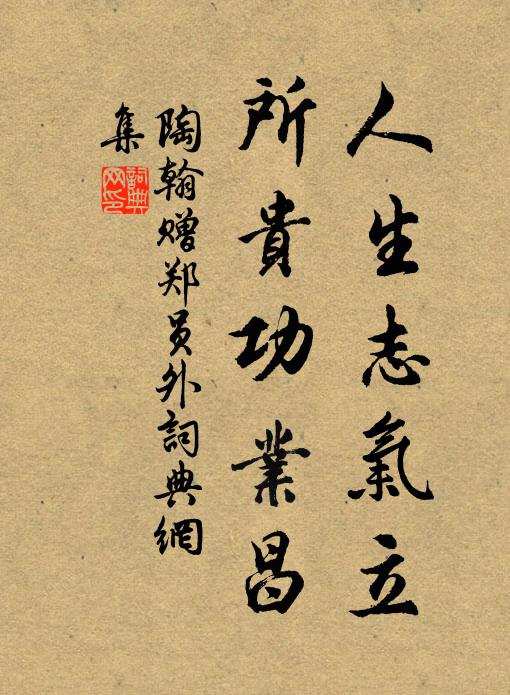 人生志氣立
所貴功業昌
陶翰赠郑员外詞典網
集
詞典網印